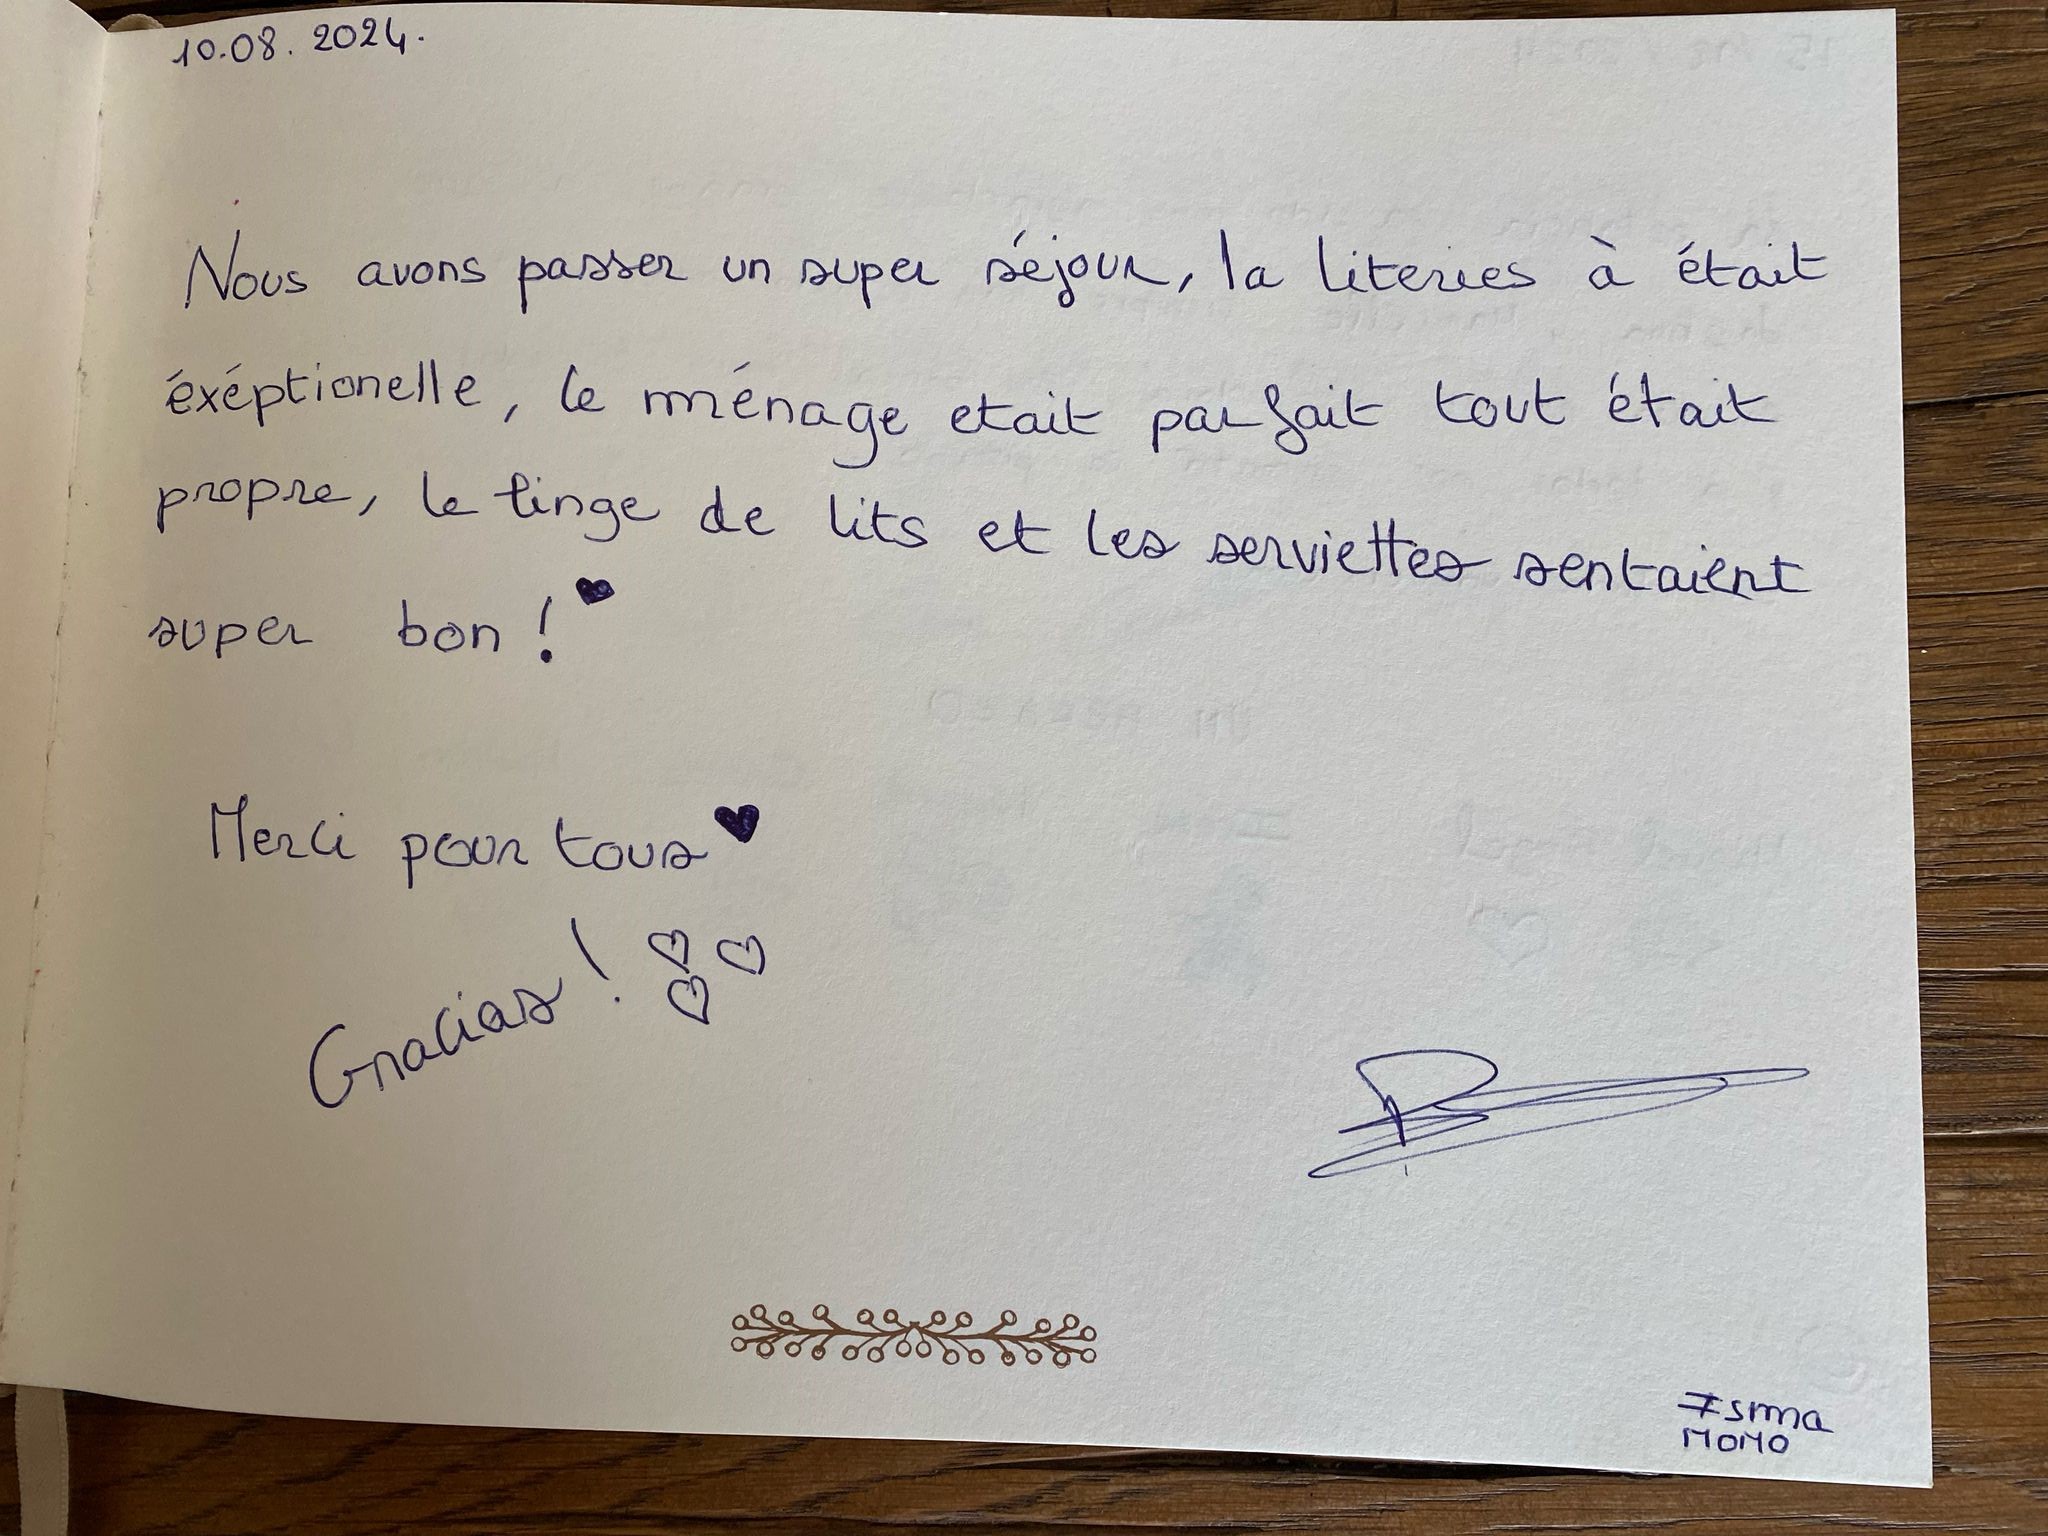 10.08.2024.
Nous avons passer un super séjour, la literies à était
éxéptionelle, le ménage etait parfait tout était
propre, le linge de lits et les serviettes sentaient
super bon !
Merci pour tous
Gracias !
Isma
MOMO